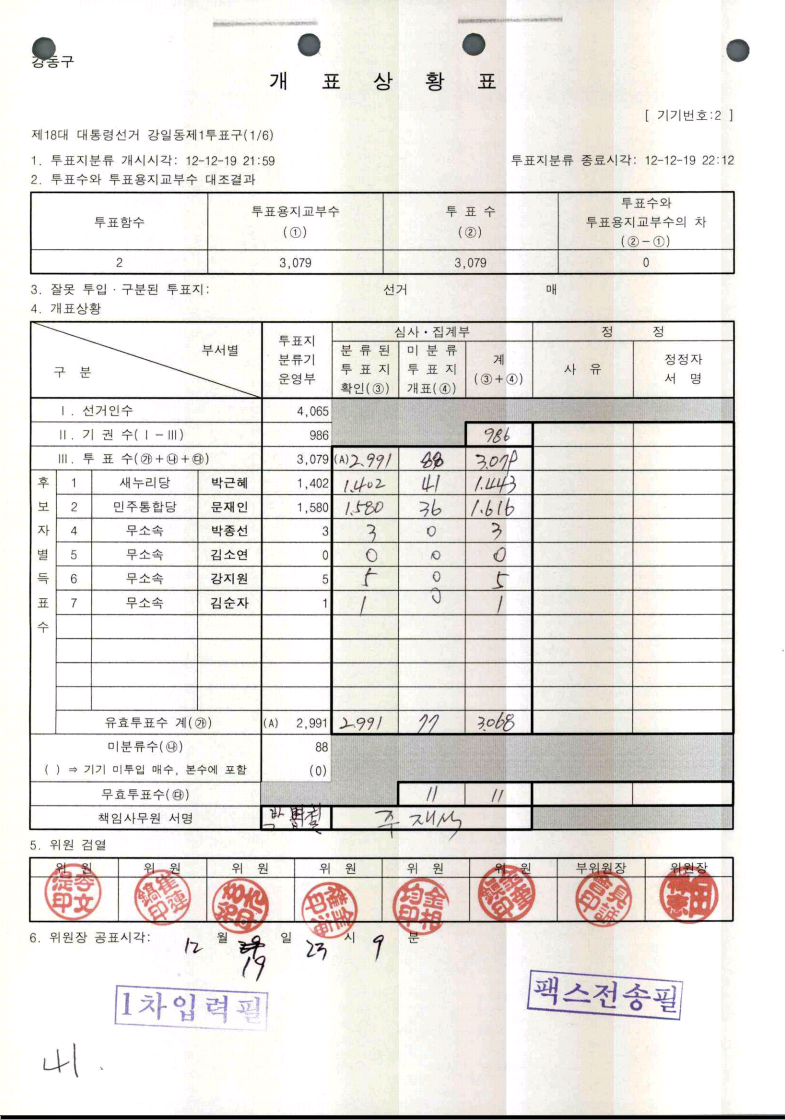 강동구
개 표 상 황 표
[ 기기번호:2 ]
제18대 대통령선거 강일동제1투표구(1/6)
1. 투표지분류 개시시각: 12-12-19 21:59 투표지분류 종료시각: 12-12-19 22:12
2. 투표수와 투표용지교부수 대조결과
투표함수 투표용지교부수 (①) 투 표 수 (②) 투표수와 투표용지교부수의 차 (②-①)
2 3,079 3,079 0
3. 잘못 투입 · 구분된 투표지: 선거 매
4. 개표상황
구 분 부서별 투표지 분류기 운영부 심사·집계부 정 정
분 류 된 투 표 지 확인(③) 미 분 류 투 표 지 개표(④) 계 (③+④) 사 유 정정자 서 명
Ⅰ. 선거인수 4,065
Ⅱ. 기 권 수(Ⅰ-Ⅲ) 986 986
Ⅲ. 투 표 수(㉮+㉯+㉰) 3,079 (A) 2.991 88 3.079
후보자별득표수
1 새누리당 박근혜 1,402 1.402 41 1.443
2 민주통합당 문재인 1,580 1.580 36 1.616
4 무소속 박종선 3 3 0 3
5 무소속 김소연 0 0 0 0
6 무소속 강지원 5 5 0 5
7 무소속 김순자 1 1 0 1
유효투표수 계(㉮) (A) 2,991 2.991 77 3.068
미분류수(㉯) 88
( ) ⇒ 기기 미투입 매수, 본수에 포함 (0)
무효투표수(㉰) 11 11
책임사무원 서명 주재식
5. 위원 검열
위 원 위 원 위 원 위 원 위 원 위 원 부위원장 위원장
6. 위원장 공표시각: 12 월 19 일 23 시 9 분
1차입력필
팩스전송필
41.